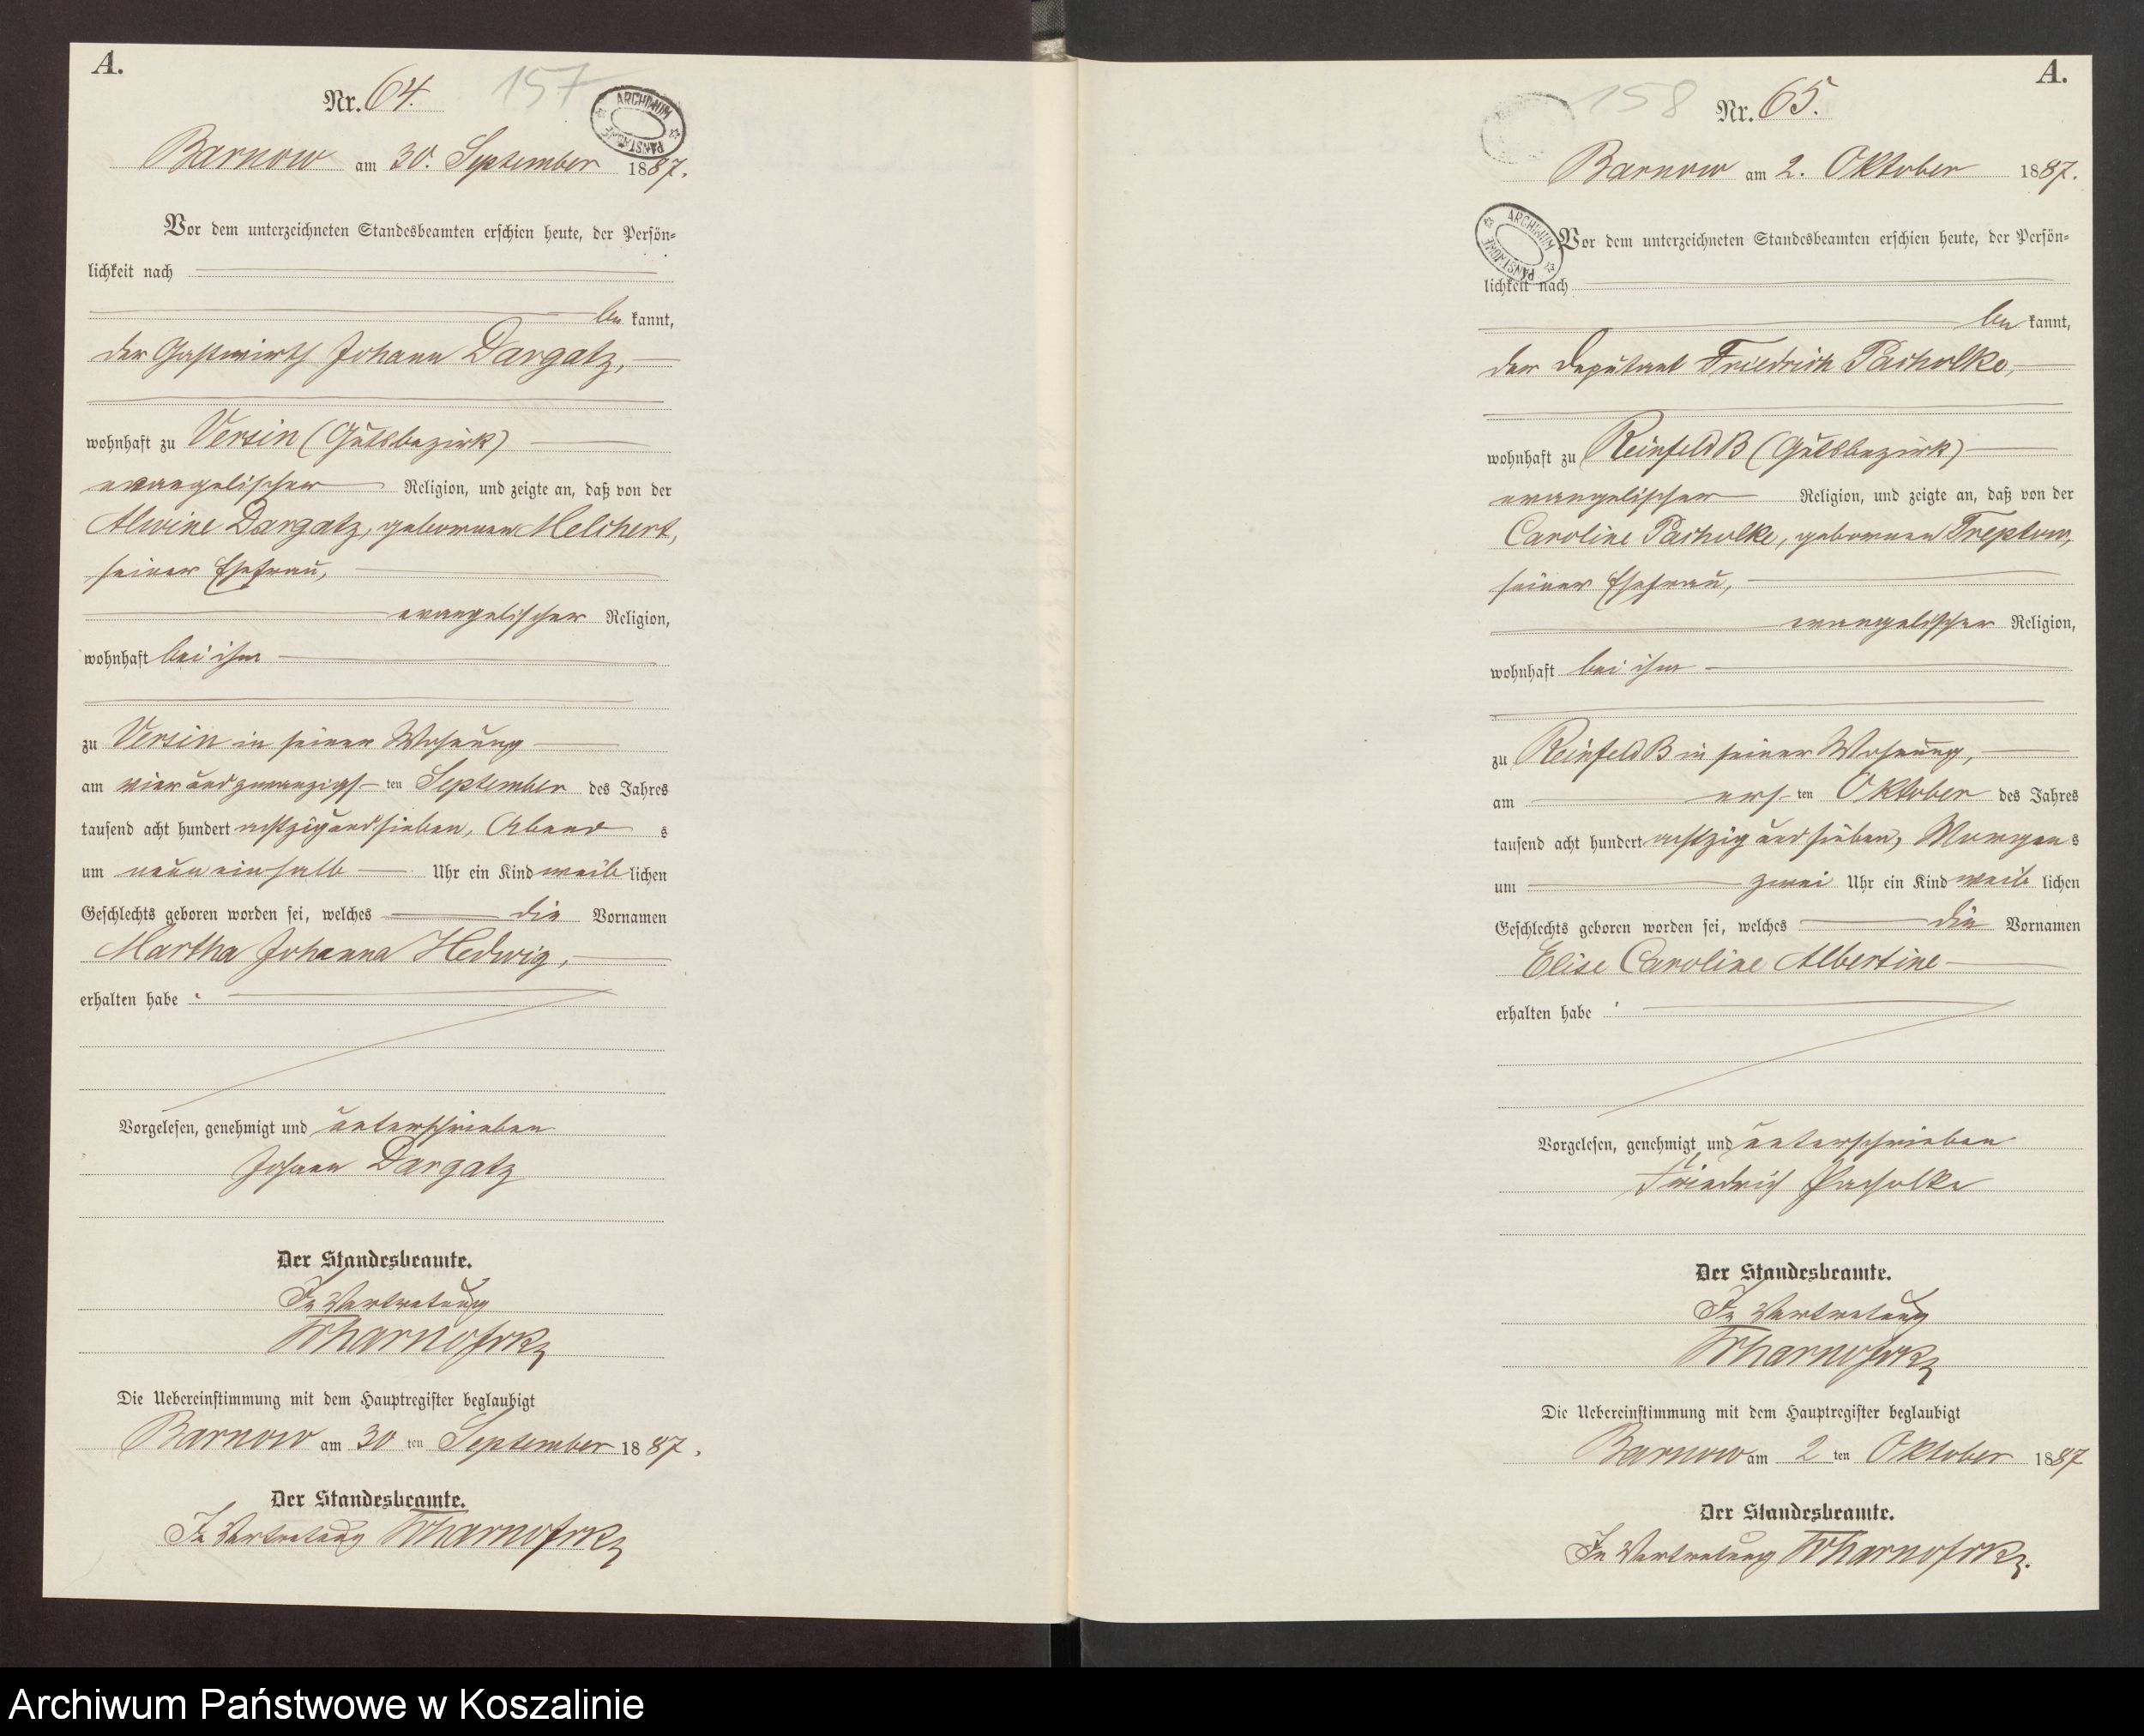 A.
Nr. 64.
157
ARCHIWUM PAŃSTWOWE
Barnow am 30. September 1887.
Vor dem unterzeichneten Standesbeamten erschien heute, der Persön=
lichkeit nach
be kannt,
der Gastwirth Johann Dargatz,
wohnhaft zu Versin (Gutsbezirk)
evangelischer Religion, und zeigte an, daß von der
Alwine Dargatz, gebornen Melchert,
seiner Ehefrau,
evangelischer Religion,
wohnhaft bei ihm
zu Versin in seiner Wohnung
am vier und zwanzigs ten September des Jahres
tausend acht hundert achtzig und sieben, Abend s
um neun ein halb Uhr ein Kind weib lichen
Geschlechts geboren worden sei, welches die Vornamen
Martha Johanna Hedwig,
erhalten habe.
Vorgelesen, genehmigt und unterschrieben
Johann Dargatz
Der Standesbeamte.
In Vertretung
Die Uebereinstimmung mit dem Hauptregister beglaubigt
Barnow am 30 ten September 1887.
Der Standesbeamte.
In Vertretung
A.
158
Nr. 65.
Barnow am 2. Oktober 1887.
ARCHIWUM PAŃSTWOWE
Vor dem unterzeichneten Standesbeamten erschien heute, der Persön=
lichkeit nach
be kannt,
der Deputant Friedrich Pacholke,
wohnhaft zu Reinfeld B (Gutsbezirk)
evangelischer Religion, und zeigte an, daß von der
Caroline Pacholke, gebornen Treptow,
seiner Ehefrau,
evangelischer Religion,
wohnhaft bei ihm
zu Reinfeld B in seiner Wohnung,
am ers ten Oktober des Jahres
tausend acht hundert achtzig und sieben, Morgen s
um zwei Uhr ein Kind weib lichen
Geschlechts geboren worden sei, welches die Vornamen
Elise Caroline Albertine
erhalten habe.
Vorgelesen, genehmigt und unterschrieben
Friedrich Pacholke
Der Standesbeamte.
In Vertretung
Die Uebereinstimmung mit dem Hauptregister beglaubigt
Barnow am 2 ten Oktober 1887
Der Standesbeamte.
In Vertretung
Archiwum Państwowe w Koszalinie